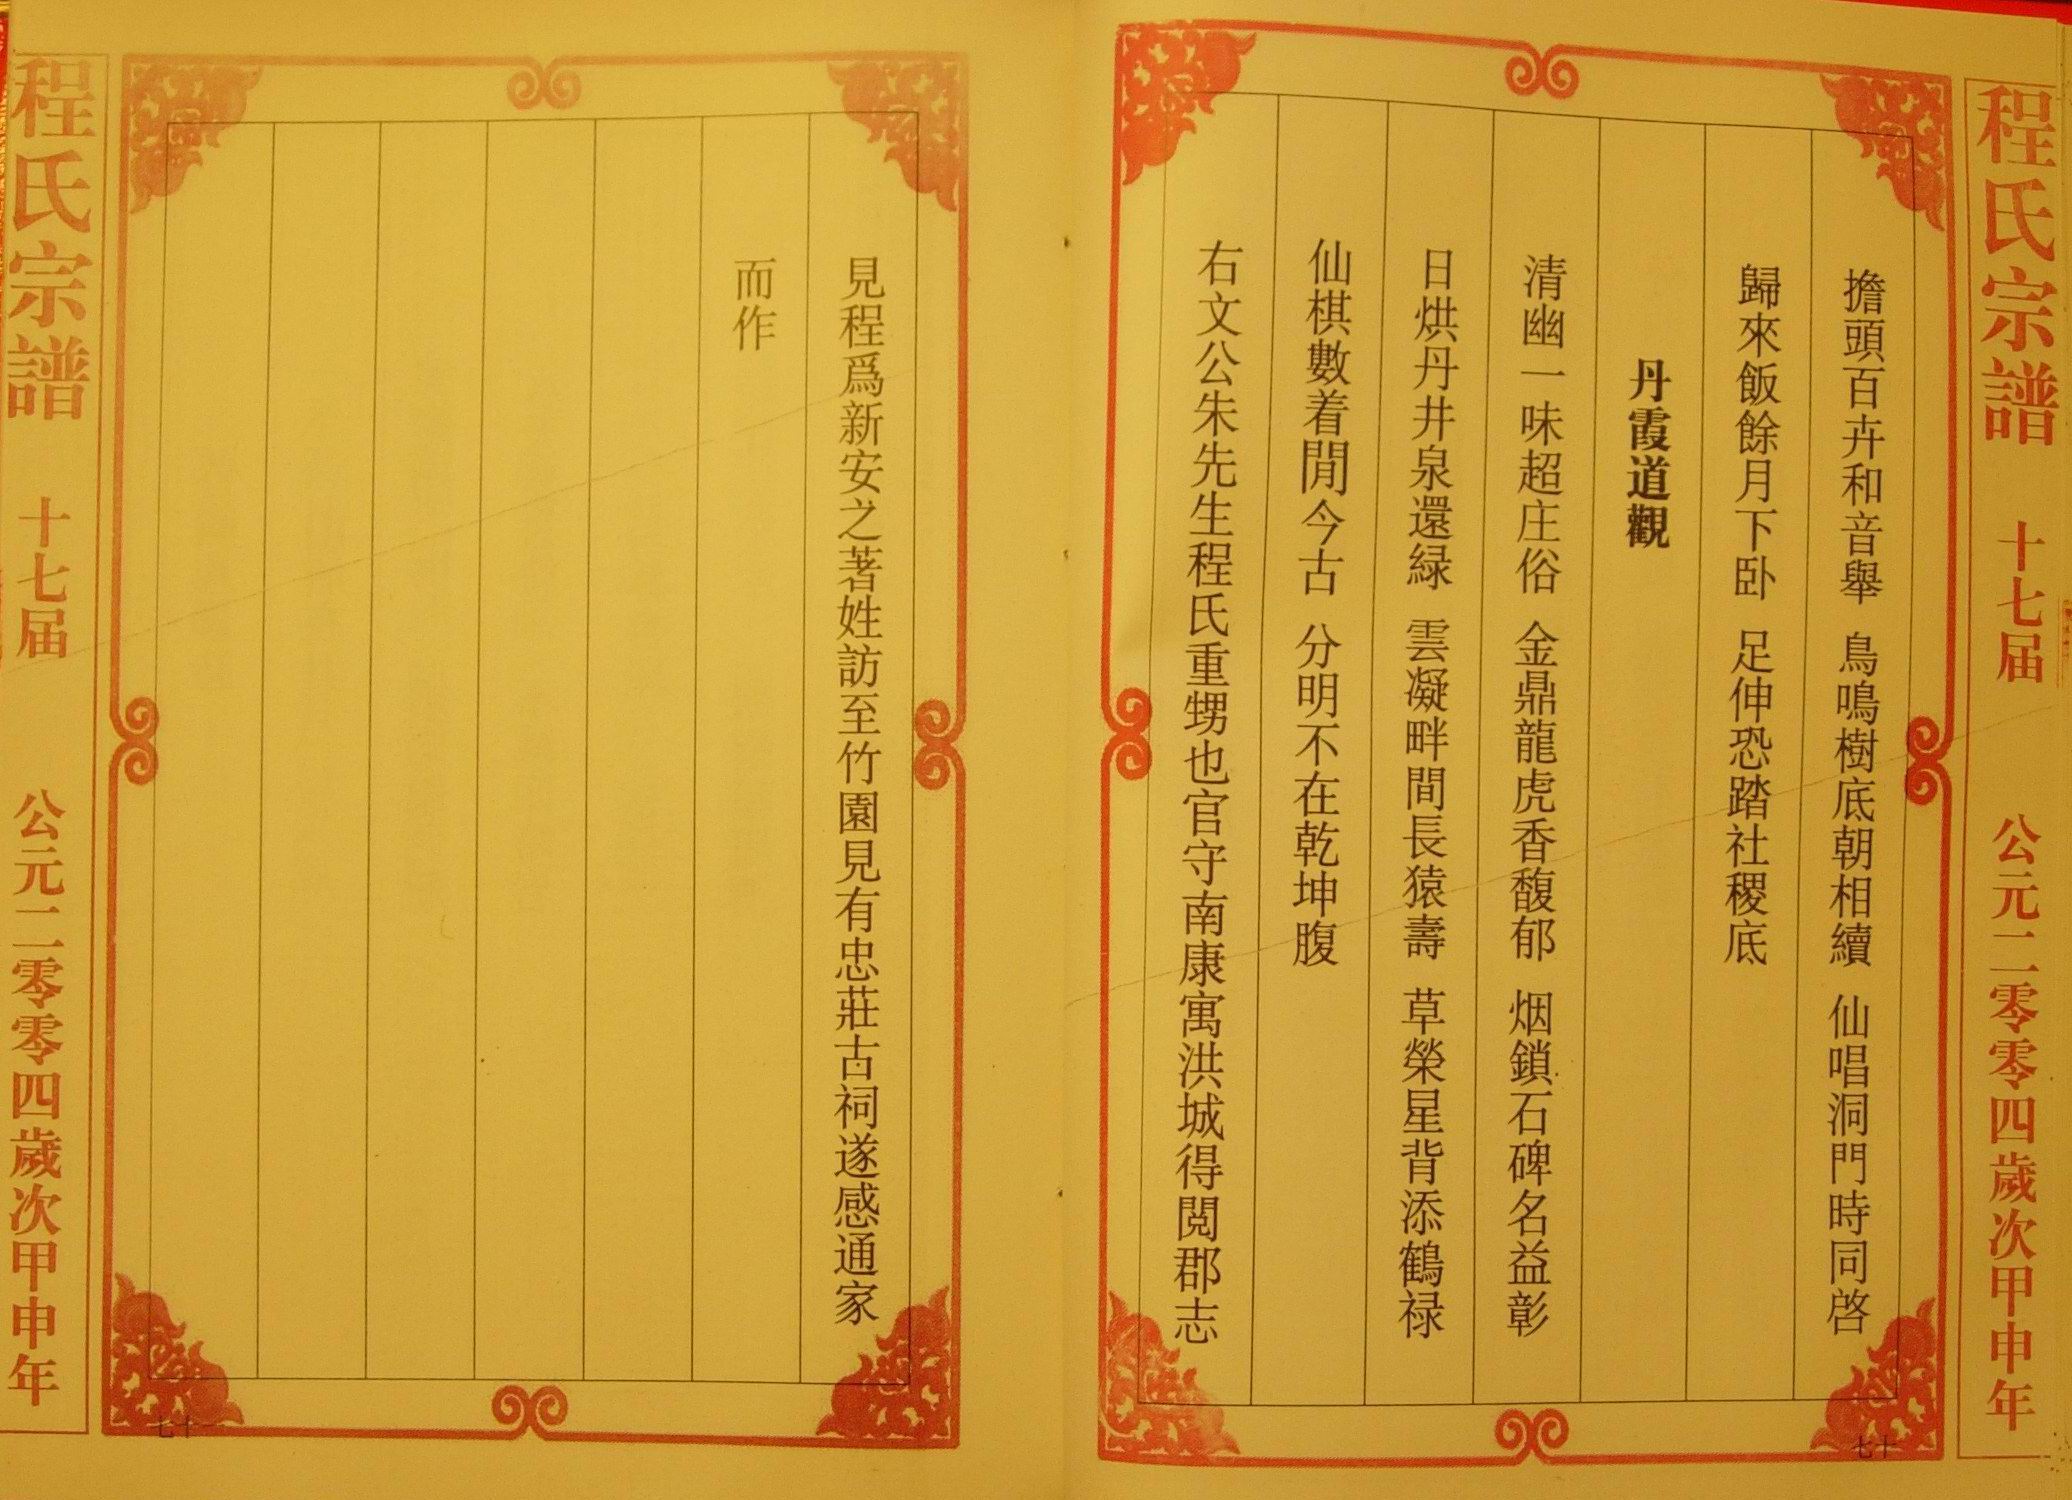 程氏宗譜 十七届 公元二零零四歲次甲申年
擔頭百卉和音舉 鳥鳴樹底朝相續 仙唱洞門時同啓
歸來飯餘月下卧 足伸恐踏社稷底
丹霞道觀
清幽一味超庄俗 金鼎龍虎香馥郁 烟鎖石碑名益彰
日烘丹井泉還緑 雲凝畔間長猿壽 草榮星背添鶴禄
仙棋數着閒今古 分明不在乾坤腹
右文公朱先生程氏重甥也官守南康寓洪城得閲郡志
七十
見程爲新安之著姓訪至竹園見有忠莊古祠遂感通家
而作
七十一
程氏宗譜 十七届 公元二零零四歲次甲申年